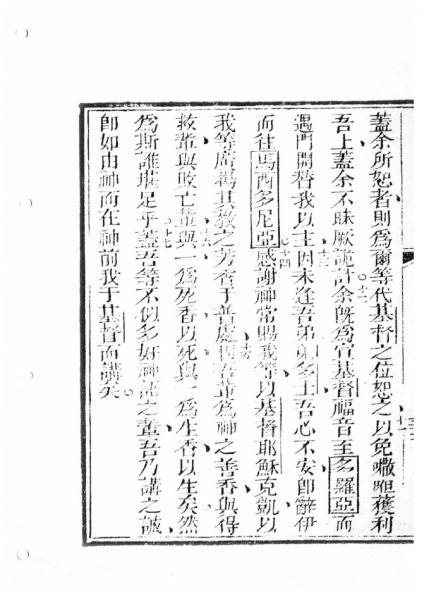 蓋余所恕者則爲爾等代基督之位恕之以免嗽呾獲利
吾上蓋余不昧厥詭計余旣爲宣基督福音至多羅亞而
遇門開替我以主因未逢吾弟弟多士吾心不安卽辭伊
而往馬西多尼亞感謝神常賜我等以基督耶穌克凱以
我等廣揚其教之芳香于善處吾輩爲神之善香與得
救輩與敗亡輩與一爲死香以死與一爲生香以生矣然
爲斯誰堪足乎蓋吾等不似多好神諾之輩吾乃講之誠
卽如由神而在神前我于基督而講矣